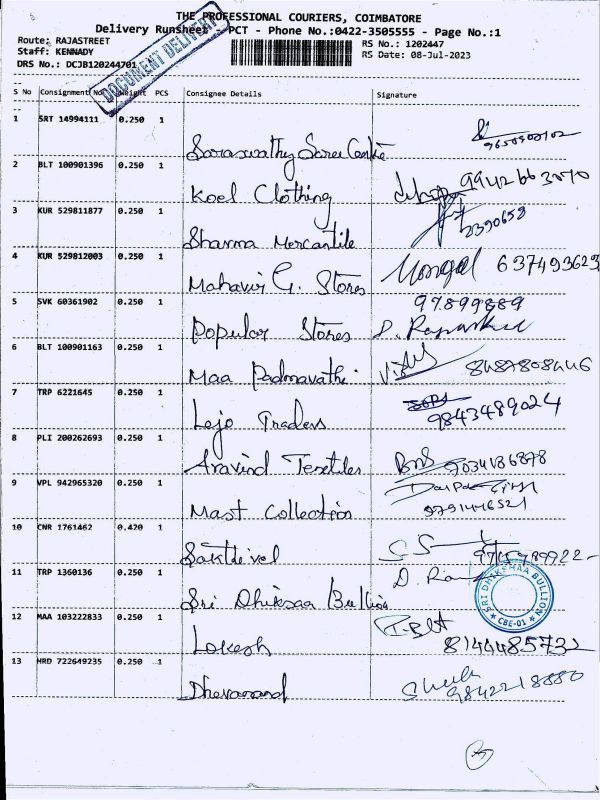 THE PROFESSIONAL COURIERS, COIMBATORE
Delivery Runsheet - PCT - Phone No.:0422-3505555 - Page No.:1
Route: RAJASTREET
Staff: KENNADY
DRS No.: DCJB120244701
RS No.: 1202447
RS Date: 08-Jul-2023
DOCUMENT DELIVERY
S No Consignment No Weight PCS Consignee Details Signature
1 SRT 14994111 0.250 1
Saraswathy Saree Centre
2 BLT 100901396 0.250 1
Koel Clothing 9942663070
3 KUR 529811877 0.250 1
Sharma Mercantile
4 KUR 529812003 0.250 1
Mahavir G. Stores Mongal 637493623
5 SVK 60361902 0.250 1 97899889
Popular Stores
6 BLT 100901163 0.250 1
Maa Padmavathi
7 TRP 6221645 0.250 1
Lejo Traders 9843489024
8 PLI 200262693 0.250 1
Aravind Textiles
9 VPL 942965320 0.250 1
Mast Collection 9791446521
10 CNR 1761462 0.420 1
Sakthivel
11 TRP 1360136 0.250 1
Sri Dhiksaa Bullion
SRI DHIKSHAA BULLION
* CBE-01 *
12 MAA 103222833 0.250 1
Lokesh 8144485732
13 HRD 722649235 0.250 1
Dhevanand 9842218880